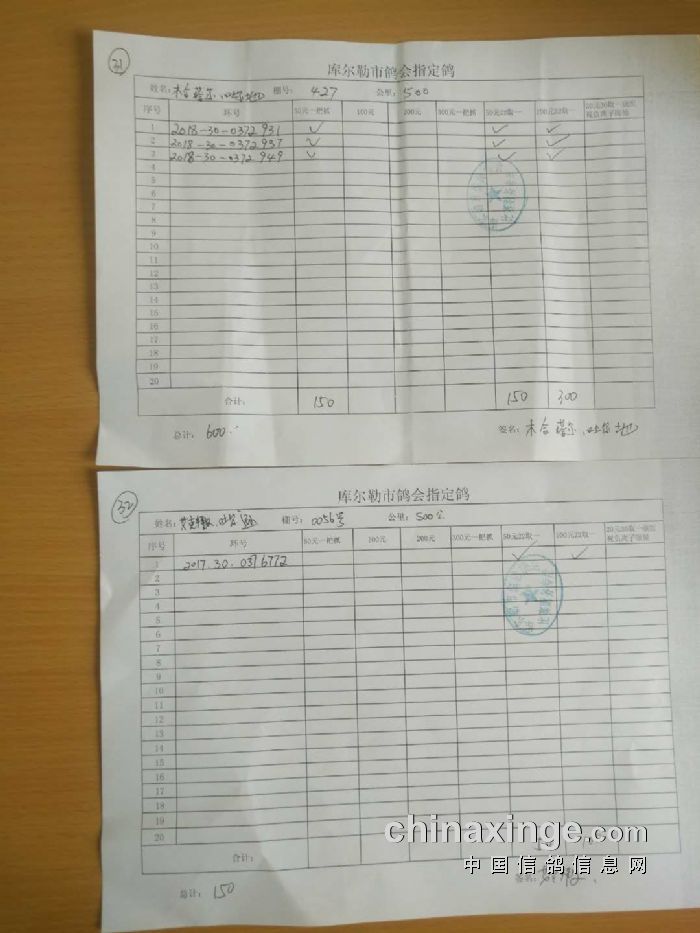 31
库尔勒市鸽会指定鸽
姓名: 木合塔尔. 棚号: 427 公里: 500
序号 环号 50元一把抓 100元 200元 300元一把抓 50元22取一 100元22取一
1 2018-30-0372931 ✓ ✓ ✓
2 2018-30-0372937 ✓ ✓ ✓
3 2018-30-0372949 ✓ ✓ ✓
4
5
6
7
8
9
10
11
12
13
14
15
16
17
18
19
20
合计: 150 150 300
总计: 600
签名: 木合塔尔.
32
库尔勒市鸽会指定鸽
姓名: 棚号: 0056号 公里: 500公
序号 环号 50元一把抓 100元 200元 300元一把抓 50元22取一 100元22取一
1 2017.30.0376772 ✓ ✓
2
3
4
5
6
7
8
9
10
11
12
13
14
15
16
17
18
19
20
合计:
总计: 150
签名:
chinaxinge.com
中国信鸽信息网